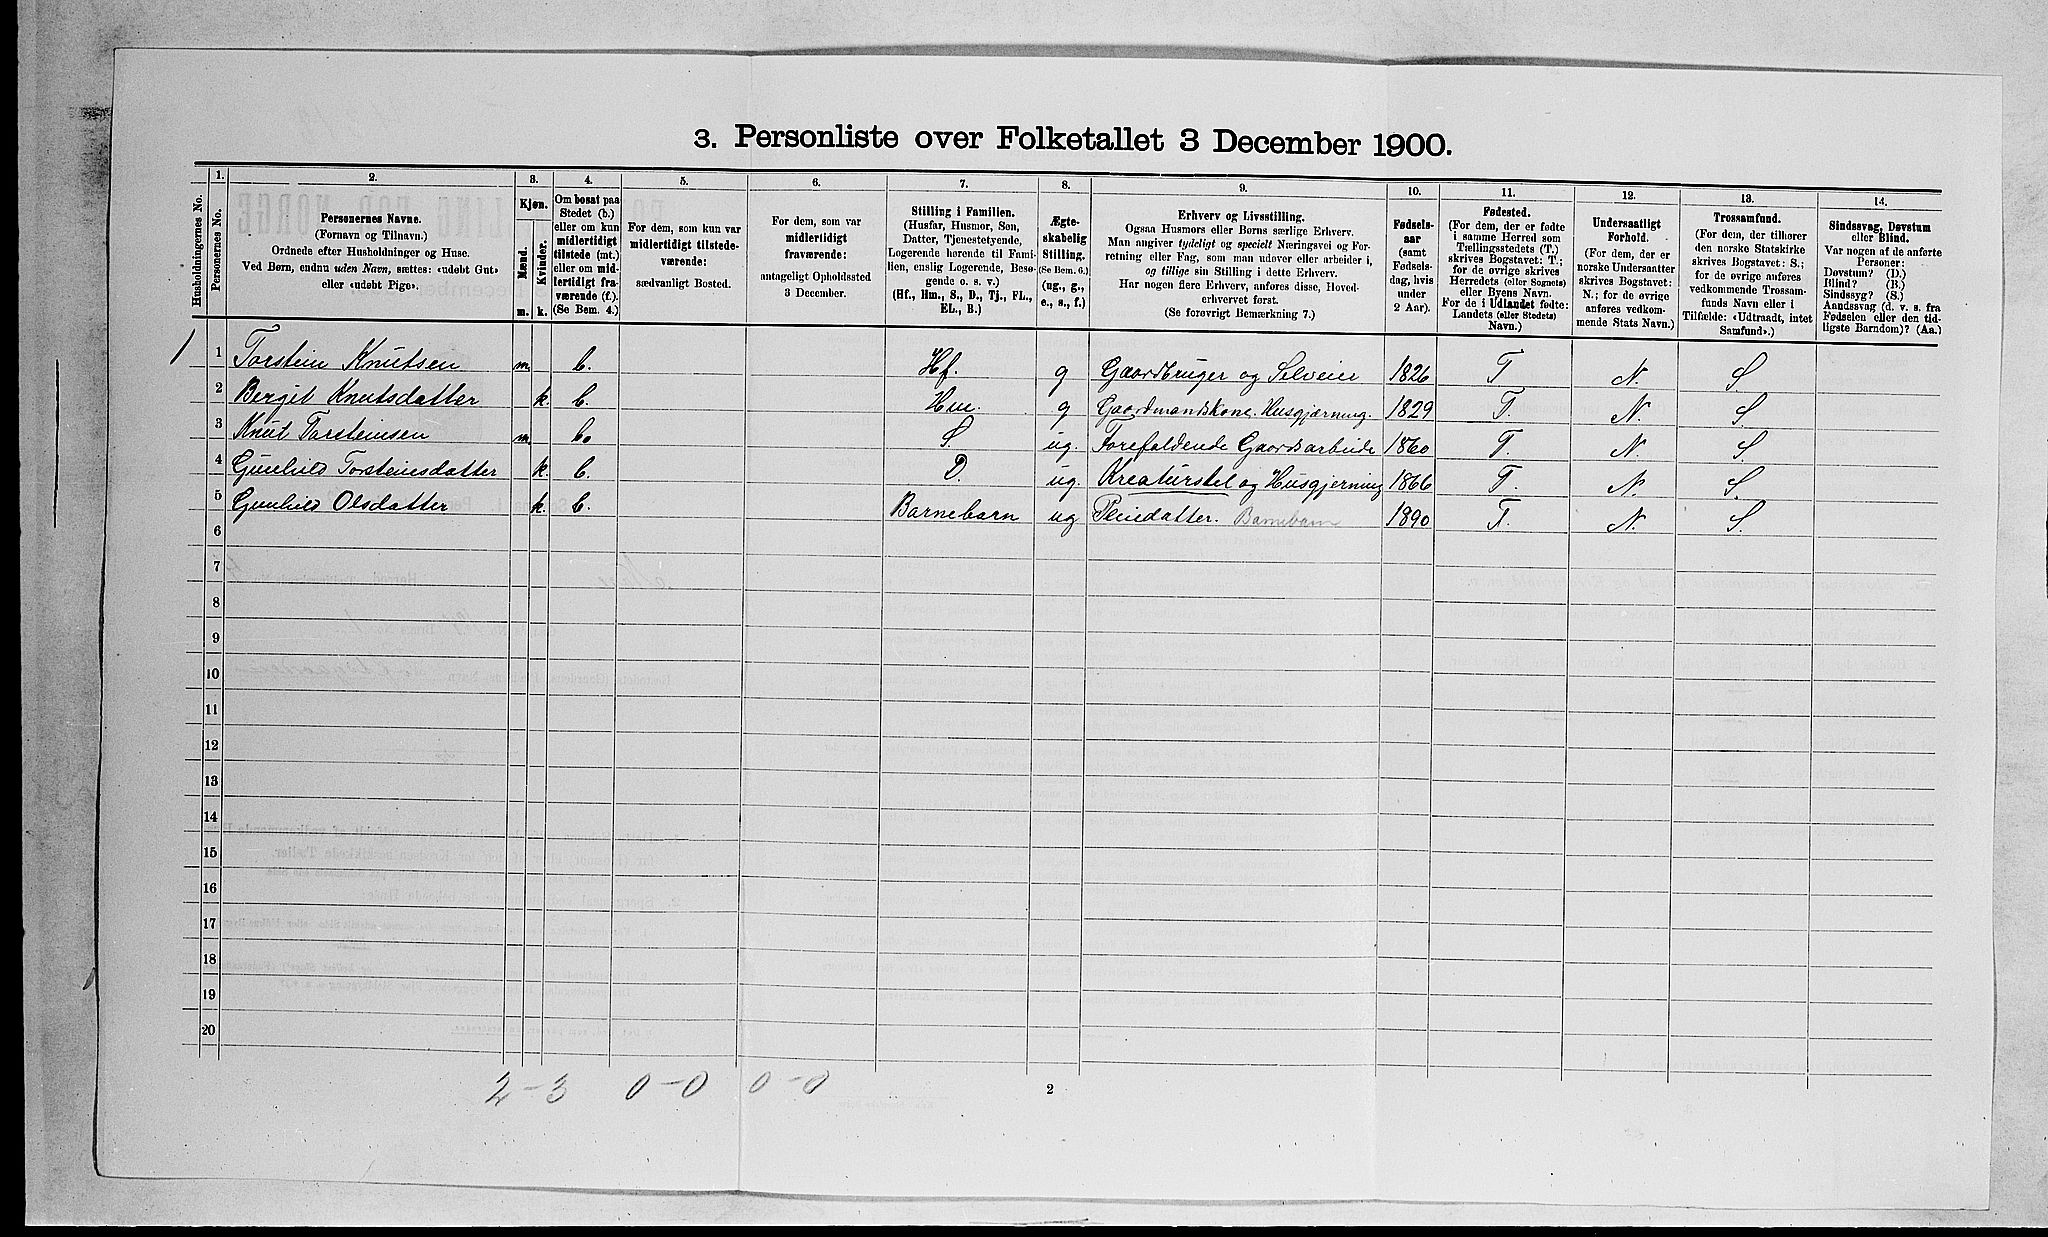 3. Personliste over Folketallet 3 December 1900.
Husholdningernes No.
1.
Personernes No.
2.
Personernes Navne.
(Fornavn og Tilnavn.)
Ordnede efter Husholdninger og Huse.
Ved Børn, endnu uden Navn, sættes: «udøbt Gut»
eller «udøbt Pige».
3.
Kjøn.
Mænd.
Kvinder.
m. k.
4.
Om bosat paa
Stedet (b.)
eller om kun
midlertidigt
tilstede (mt.)
eller om mid-
lertidigt fra-
værende (f.).
(Se Bem. 4.)
5.
For dem, som kun var
midlertidigt tilstede-
værende:
sædvanligt Bosted.
6.
For dem, som var
midlertidigt
fraværende:
antageligt Opholdssted
3 December.
7.
Stilling i Familien.
(Husfar, Husmor, Søn,
Datter, Tjenestetyende,
Logerende hørende til Fami-
lien, enslig Logerende, Besø-
gende o. s. v.)
(Hf., Hm., S., D., Tj., FL.,
EL., B.)
8.
Ægte-
skabelig
Stilling.
(Se Bem. 6.)
(ug., g.,
e., s., f.)
9.
Erhverv og Livsstilling.
Ogsaa Husmors eller Børns særlige Erhverv.
Man angiver tydeligt og specielt Næringsvei og For-
retning eller Fag, som man udøver eller arbeider i,
og tillige sin Stilling i dette Erhverv.
Har nogen flere Erhverv, anføres disse, Hoved-
erhvervet først.
(Se forøvrigt Bemærkning 7.)
10.
Fødsels-
aar
(samt
Fødsels-
dag, hvis
under
2 Aar).
11.
Fødested.
(For dem, der er fødte
i samme Herred som
Tællingsstedets (T.)
skrives Bogstavet: T.;
for de øvrige skrives
Herredets (eller Sognets)
eller Byens Navn.
For de i Udlandet fødte:
Landets (eller Stedets)
Navn.)
12.
Undersaatligt
Forhold.
(For dem, der er
norske Undersaatter
skrives Bogstavet:
N.; for de øvrige
anføres vedkom-
mende Stats Navn.)
13.
Trossamfund.
(For dem, der tilhører
den norske Statskirke
skrives Bogstavet: S.;
for de øvrige anføres
vedkommende Trossam-
funds Navn eller i
Tilfælde: «Udtraadt, intet
Samfund».)
14.
Sindssvag, Døvstum
eller Blind.
Var nogen af de anførte
Personer:
Døvstum? (D.)
Blind? (B.)
Sindssyg? (S.)
Aandssvag (d. v. s. fra
Fødselen eller den tid-
ligste Barndom)? (Aa.)
1 1 Torstein Knutsen m. b. Hf. g Gaardbruger og Selveier 1826 T N. S
2 Bergit Knutsdatter k. b. Hm. g Gaardmandskone. Husgjærning. 1829 T. N S
3 Knut Torsteinsen m. b. S. ug. Forefaldende Gaardsarbeide 1860 T. N. S.
4 Gunhild Torsteinsdatter k. b. D. ug. Kreaturstel og Husgjerning 1866 T. N. S.
5 Gunhild Olsdatter k. b. Barnebarn ug Pleiedatter. Barnebarn 1890 T. N. S.
6
7
8
9
10
11
12
13
14
15
16
17
18
19
20
2-3 0-0 0-0
2